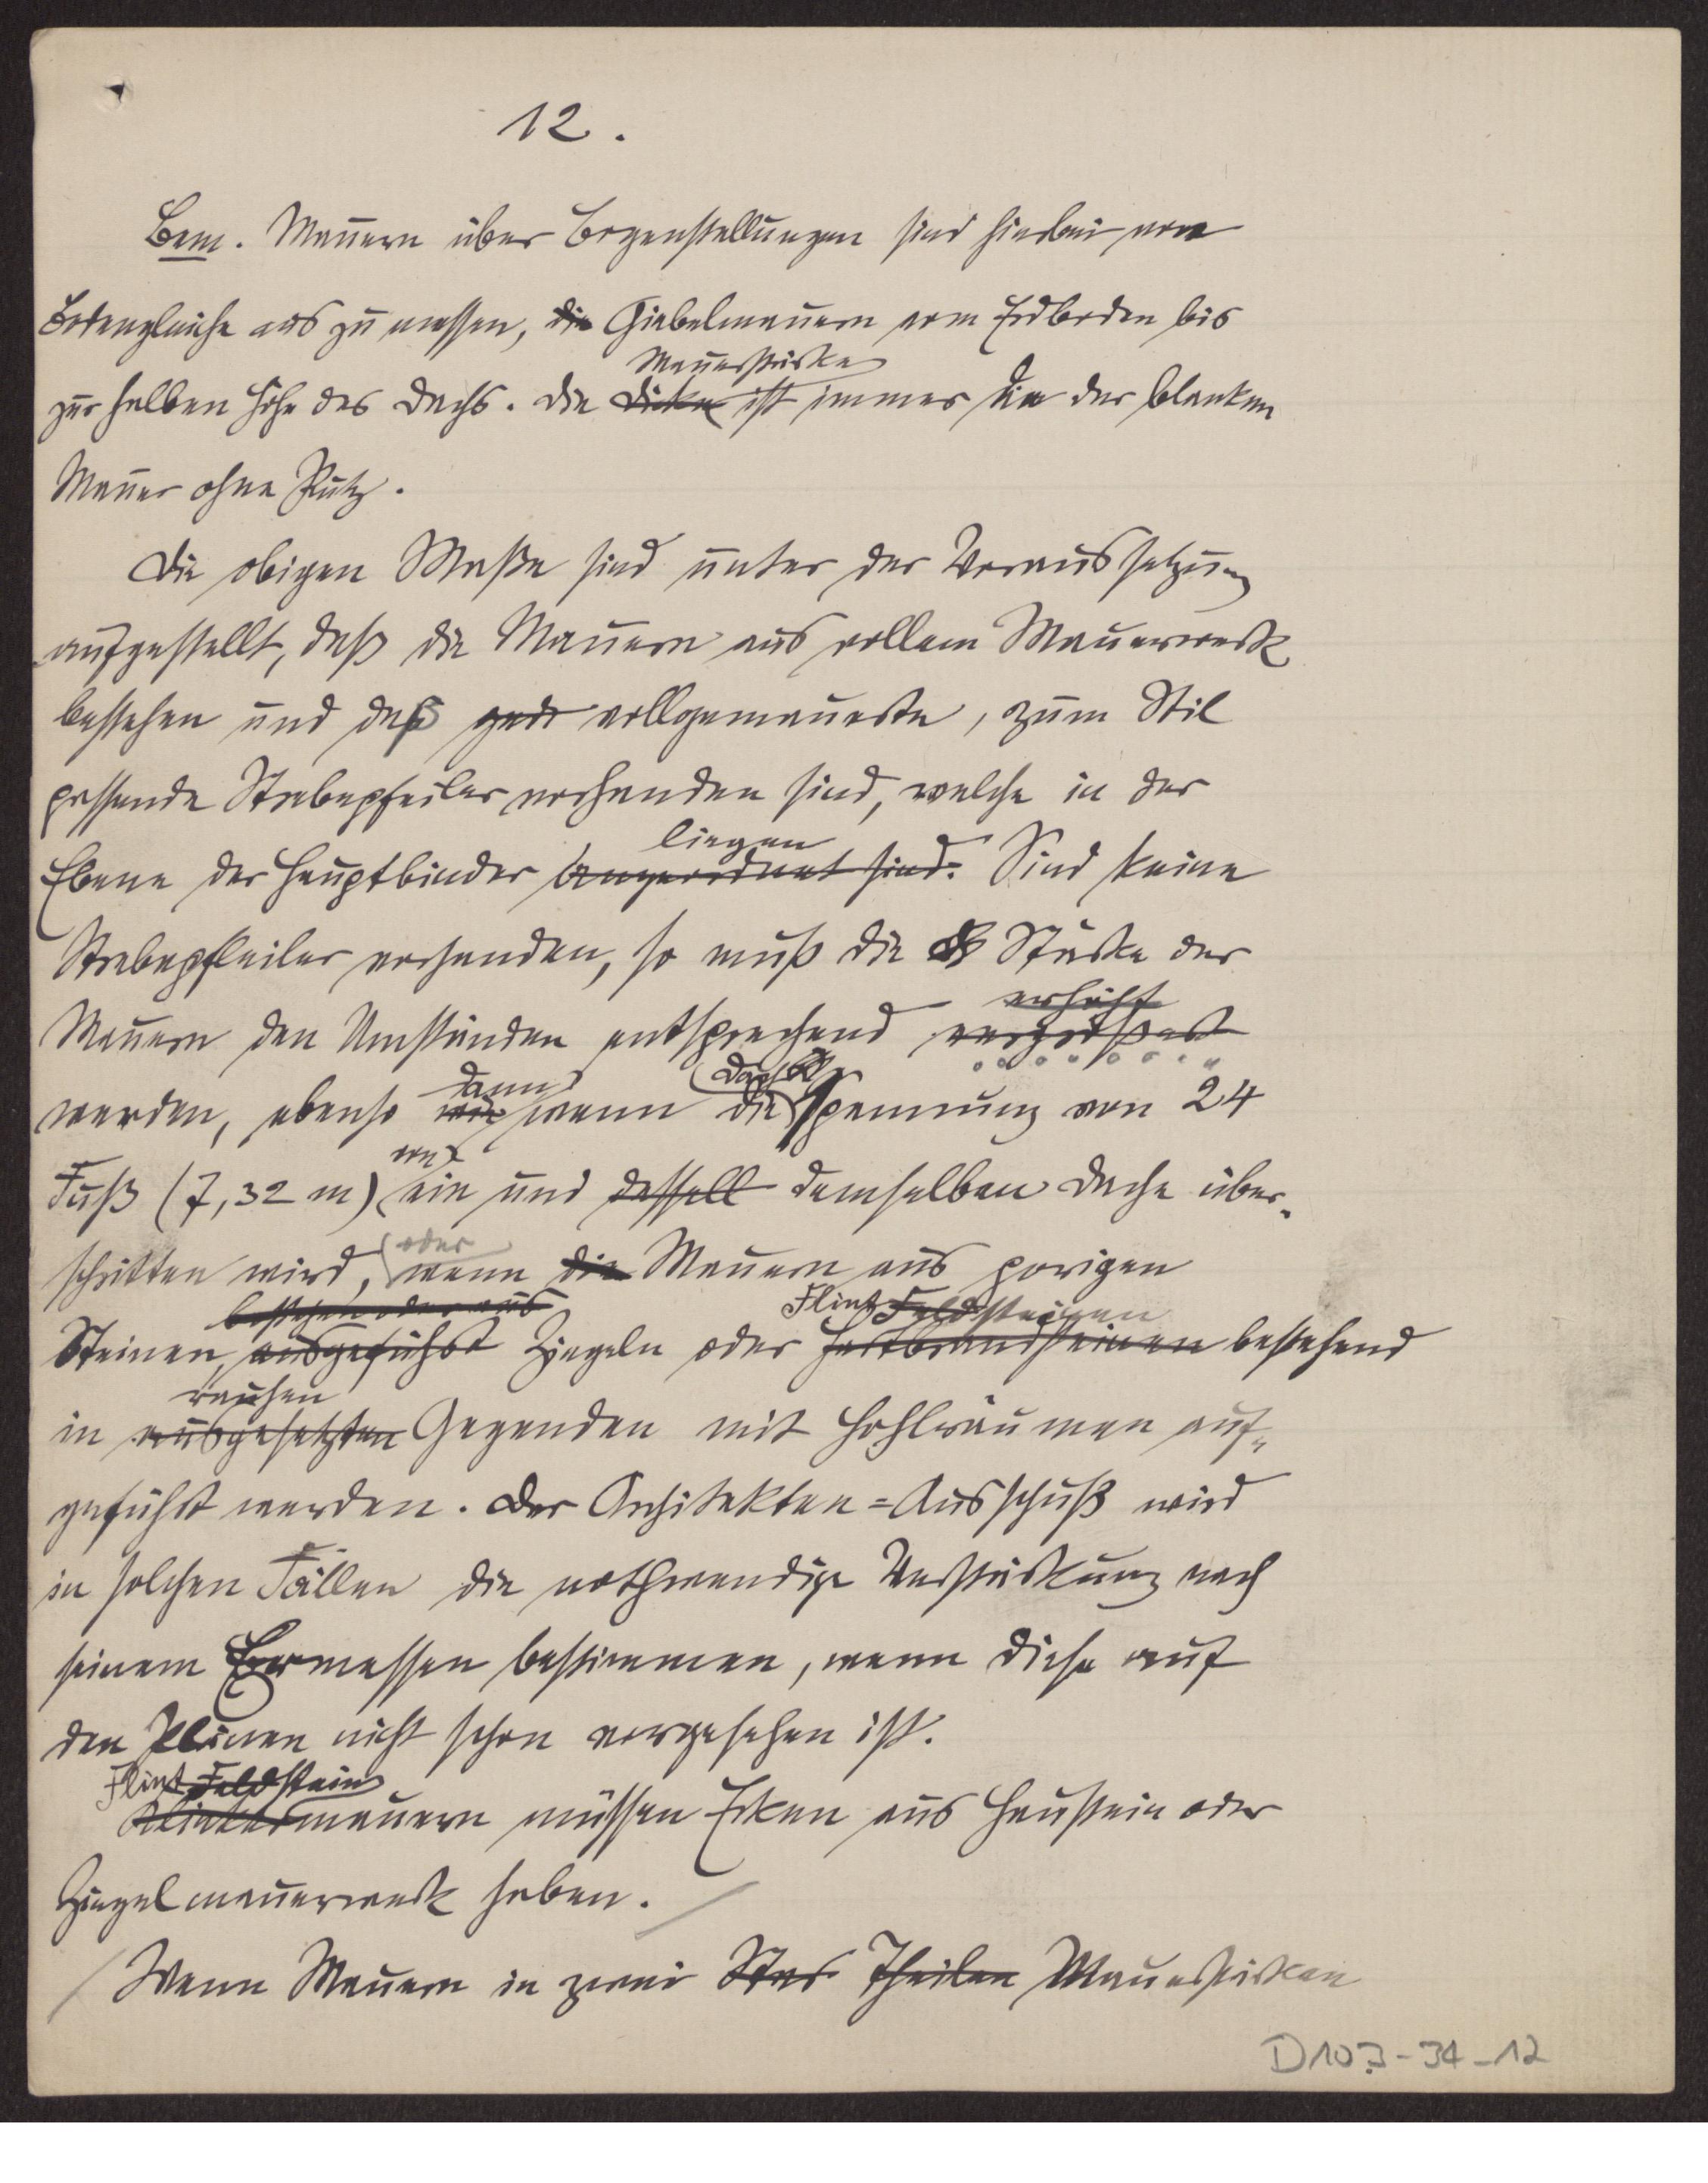 12.
Bem. Mauern über Bogenstellungen sind hierbei von
Bodengleiche aus zu messen, die Giebelmauern vom Erdboden bis
Mauerstärke
zur halben Höhe des Dachs. Die Dicke ist immer die der blanken
Mauer ohne Putz.
Die obigen Maße sind unter der Voraussetzung
aufgestellt, daß die Mauern aus vollem Mauerwerk
bestehen und daß vollgemauerte, zum Stil
passende Strebepfeiler vorhanden sind, welche in der
liegen
Ebene der Hauptbinder angeordnet sind. Sind keine
Strebepfeiler vorhanden, so muß die Stärke der
erhöht
Mauern den Umständen entsprechend vergrößert
dann
werden, ebenso wie wenn die Spannung von 24
von
Fuß (7,32 m) ein und dessell demselben Dache über-
oder
schritten wird, wenn die Mauern aus porigen
bestehen oder aus Flint Feldsteinen
Steinen, ausgeführt Ziegeln oder Hartbrandsteinen bestehend
rauhen
in ausgesetzten Gegenden mit Hohlräumen auf-
geführt werden. Der Architekten=Ausschuß wird
in solchen Fällen die nothwendige Verstärkung nach
seinem Ermessen bestimmen, wenn diese auf
den Plänen nicht schon vorgesehen ist.
Flint Feldstein
Klinkermauern müssen Ecken aus Haustein oder
Ziegelmauerwerk haben.
Wenn Mauern in zwei Theilen Mauerstärken
D103-34-12